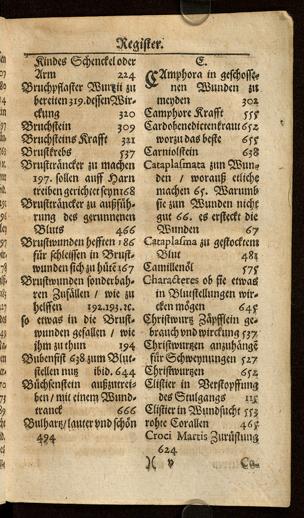 Register.
Kindes Schenckel oder
Arm 224
Bruchpflaster Wurtzii zu
bereiten 319. dessen Wir-
ckung 320
Bruchstein 309
Bruchsteins Krafft 321
Brustkrebs 537
Brustträncker zu machen
197. sollen auff Harn
treiben gerichtet seyn 168
Brustträncker zu außfüh-
rung des gerunnenen
Bluts 466
Brustwunden hefften 186
für schleissen in Brust-
wunden sich zu hüte 167
Brustwunden sonderbah-
ren Zufällen / wie zu
helffen 192.193.rc.
so etwas in die Brust-
wunden gefallen / wie
ihm zu thun 194
Bubensist 638 zum Blut-
stellen nutz ibid. 644
Büchsenstein außzutrei-
ben / mit einem Wund-
tranck 666
Bulhartz / lauter vnd schön
494
C.
CAmphora in geschosse-
nen Wunden zu
meyden 302
Camphore Krafft 555
Cardobenedictenkraut 652
worzu das beste 655
Carniolstein 638
Cataplasmata zum Wun-
den / worauß etliche
machen 65. Warumb
sie zun Wunden nicht
gut 66. es ersteckt die
Wunden 67
Cataplasma zu gestocktem
Blut 481
Camillenöl 575
Characteres ob sie etwas
in Blutstellungen wir-
cken mögen 645
Christwurtz Zäpfflein ge-
brauch vnd wirckung 537
Christwurtzen anzuhänge
für Schweynungen 527
Christwurtzen 652
Clistier in Verstopffung
des Stulgangs 115
Clistier in Wundsucht 553
rohte Corallen 465
Croci Martis Zurüstung
624